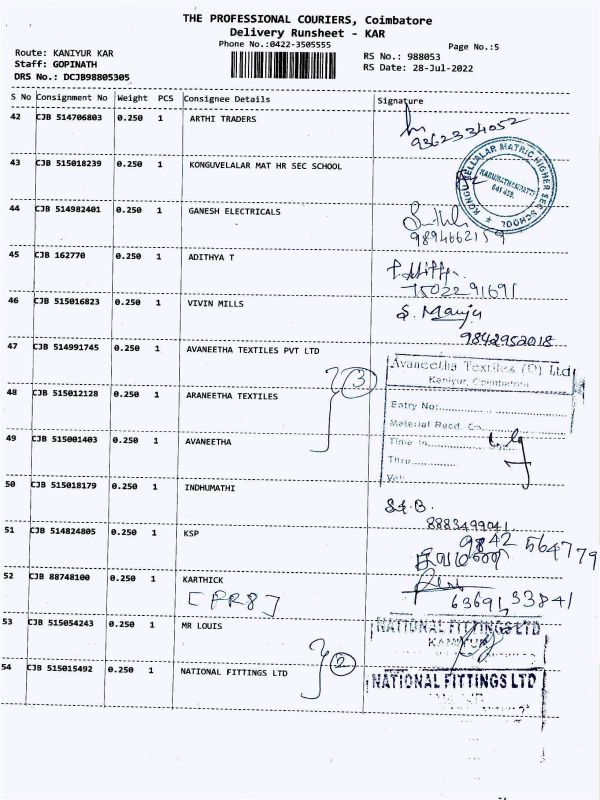 THE PROFESSIONAL COURIERS, Coimbatore
Delivery Runsheet - KAR
Phone No.:0422-3505555
Page No.:5
Route: KANIYUR KAR
Staff: GOPINATH
DRS No.: DCJB98805305
RS No.: 988053
RS Date: 28-Jul-2022
S No Consignment No Weight PCS Consignee Details Signature
42 CJB 514706803 0.250 1 ARTHI TRADERS
9362334052
43 CJB 515018239 0.250 1 KONGUVELALAR MAT HR SEC SCHOOL
KONGU VELLALAR MATRIC HIGHER SEC SCHOOL
KARUMATHAMPATTI
641 659.
44 CJB 514982401 0.250 1 GANESH ELECTRICALS
45 CJB 162770 0.250 1 ADITHYA T
7502291691
46 CJB 515016823 0.250 1 VIVIN MILLS
S. Manju
9842952018
47 CJB 514991745 0.250 1 AVANEETHA TEXTILES PVT LTD
Avaneetha Textiles (P) Ltd
Kaniyur, Coimbatore
48 CJB 515012128 0.250 1 ARANEETHA TEXTILES
3
Entry No:
Material Recd. On
49 CJB 515001403 0.250 1 AVANEETHA
Time In
Thru
50 CJB 515018179 0.250 1 INDHUMATHI
8883499041
51 CJB 514824805 0.250 1 KSP
9842 564779
52 CJB 88748100 0.250 1 KARTHICK
[PR8]
6369133841
53 CJB 515054243 0.250 1 MR LOUIS
NATIONAL FITTINGS LTD
KANIYUR
54 CJB 515015492 0.250 1 NATIONAL FITTINGS LTD
2
NATIONAL FITTINGS LTD